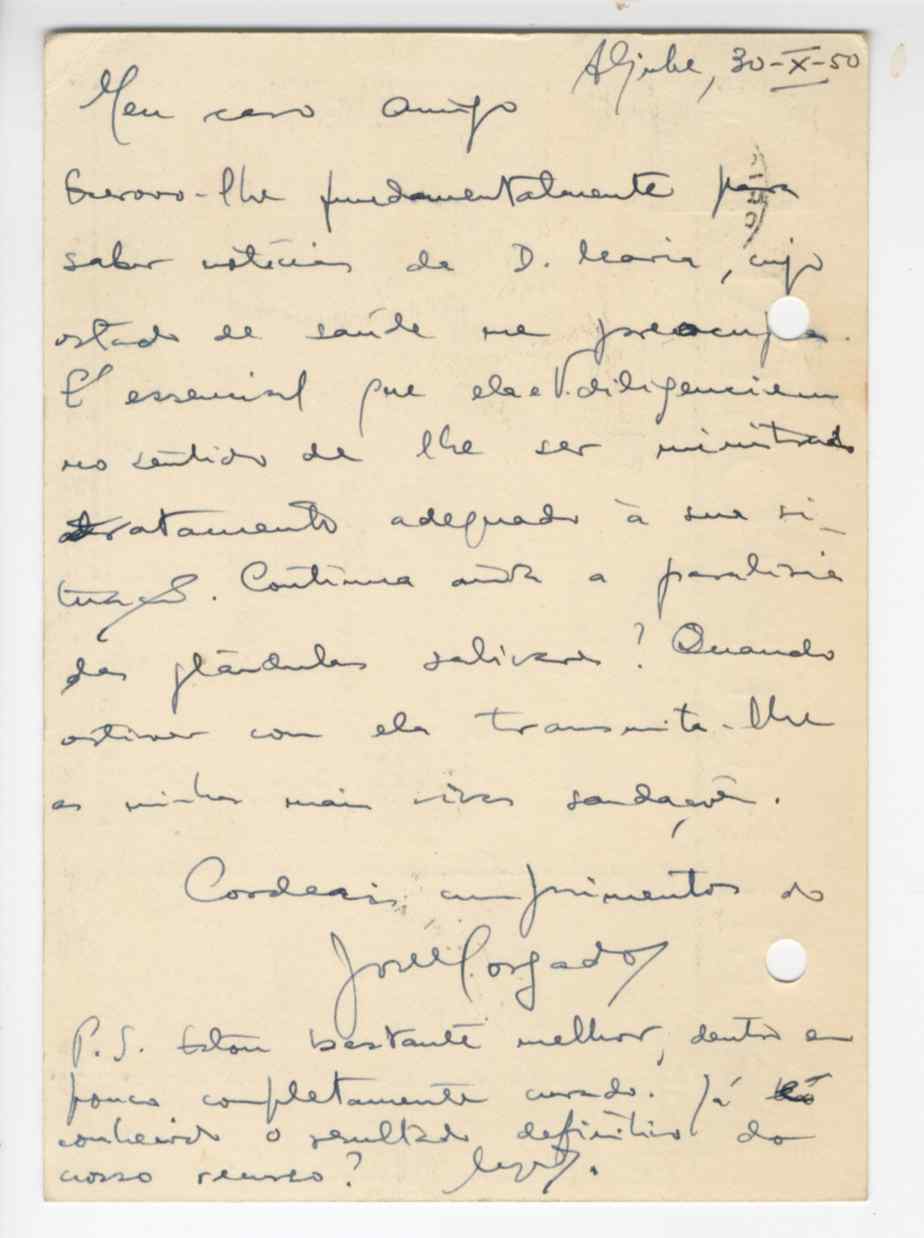 Aljube, 30-X-50
Meu caro Amigo
Escrevo-lhe fundamentalmente para
saber notícias de D. Maria, cujo
estado de saúde me preocupa.
E' essencial que ela e V. diligenciem
no sentido de lhe ser ministrado
tratamento adequado à sua si-
tuação. Continua ainda a paralisia
das glândulas salivares? Quando
estiver com ela transmita-lhe
as minhas mais vivas saudações.
Cordeais cumprimentos do
José Morgado
P.S. Estou bastante melhor, dentro em
pouco completamente curado. Já é
conhecido o resultado definitivo do
nosso recurso?